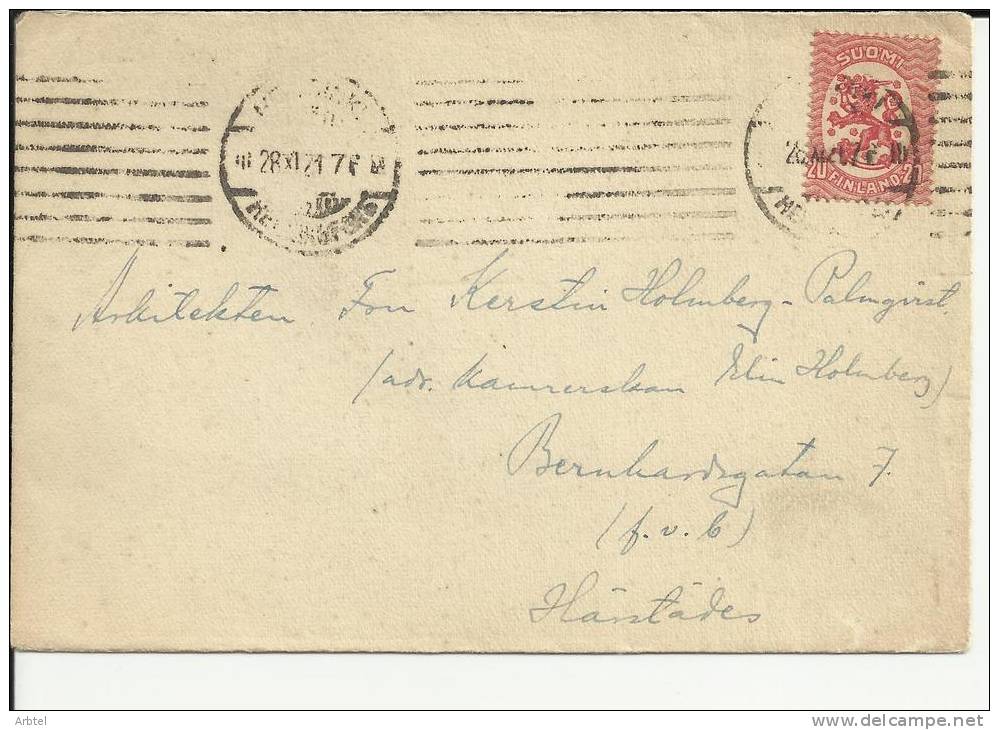 SUOMI
20 FINLAND 20
28 XI 21 7 F
HELSINGFORS
Arkitekten Fru Kerstin Holmberg-Palmqvist.
(adr. Kamrerskan Elin Holmberg)
Bernhardsgatan 7.
(f.v.b)
Härstädes
Arbtel
delcampe.net